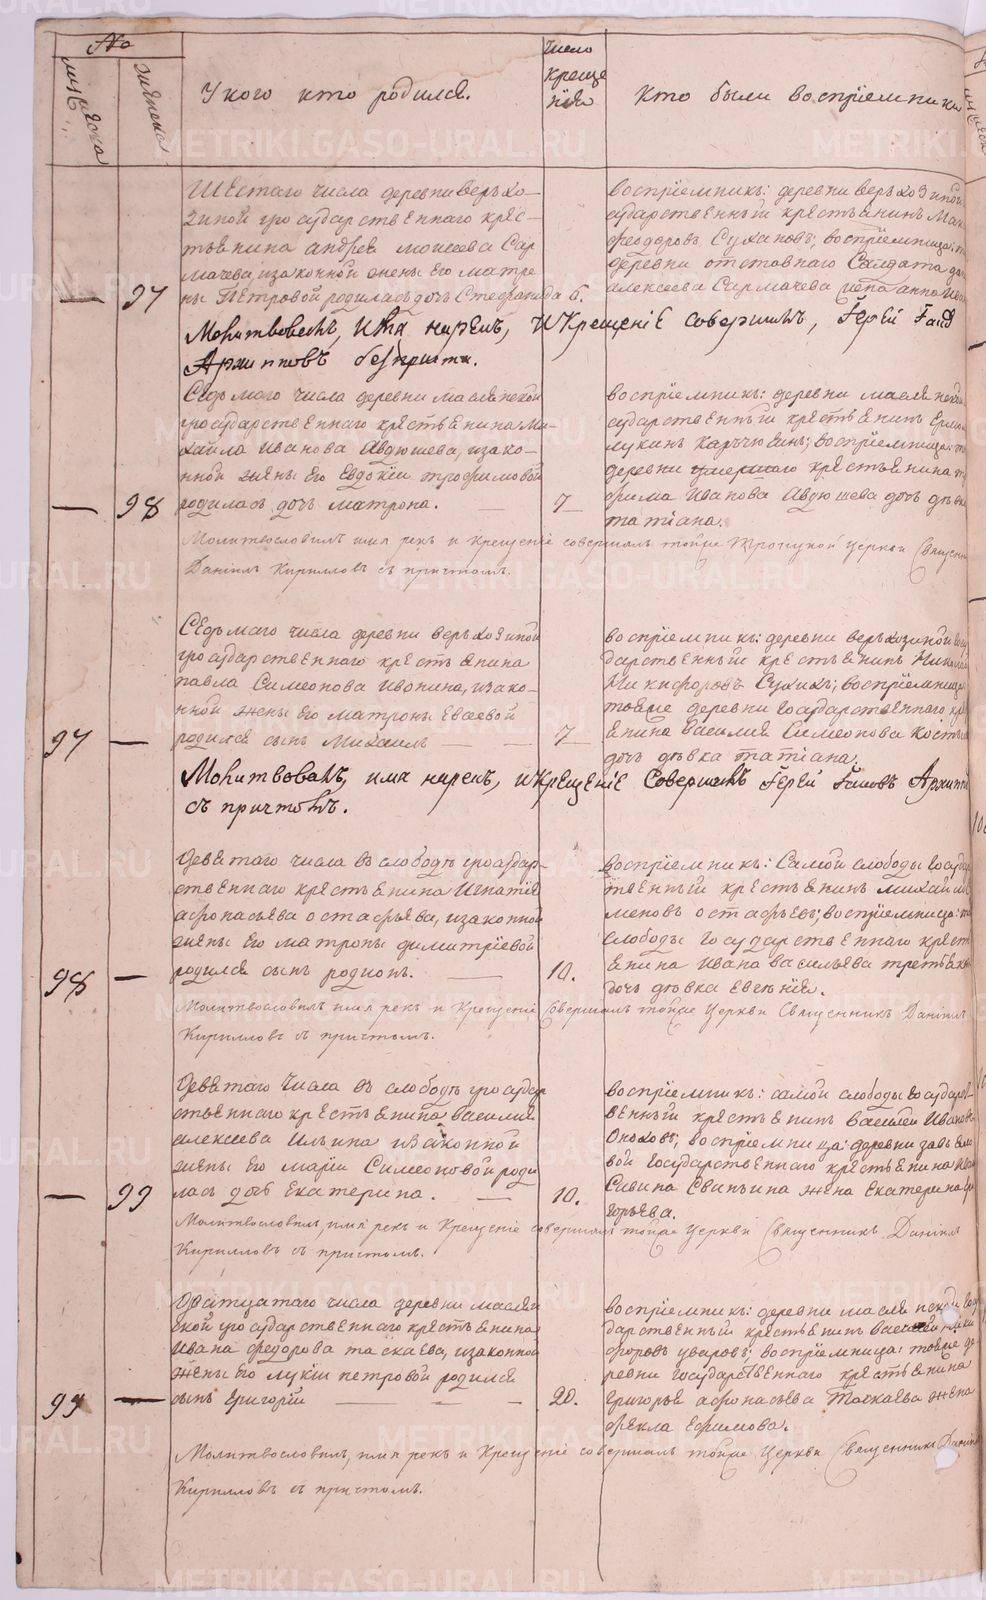 №
мужеска
женска
У кого кто родился.
Число
Креще
нїя
Кто были воспрїемники
Шестаго числа деревни Верхо–
зиной государственнаго крес–
тьянина андрея моисеева Сар
мачева, изаконной жены его матре
ны Петровой родиласъ дочь Стефанида
—
97
6.
воспрїемникъ: деревни верхозиной
сударственный крестьянинъ
феодоровъ Сухановъ; воспрїемница:
деревни отставнаго Салдата
алексеева Сармачева жена анна
Молитвовалъ, имя нарекъ, и Крещенїе совершилъ, Їерей
Архиповъ безпричта.
Седьмаго числа деревни маслянской
государственнаго крестьянина Ми–
хайла Иванова Авдюшева, изако–
нной жены его Евдокїи трофимовой
родиласъ дочь матрона.
—
98
7
воспрїемникъ: деревни маслянской
сударственный крестьянинъ
лукинъ воспрїемница:
деревни умершаго крестьянина
Иванова Авдюшева дочь девка
татїана.
Молитвословилъ имя рекъ и крещенїе совершалъ тойже Троицкой церкви Священн
Данїилъ Кирилловъ съ причтомъ.
Седьмаго числа деревни верхозиной
государственнаго крестьянина
павла Симеонова Ивонина, изако–
нной жены его матроны Евсеевой
родился сынъ Михаилъ
97
—
7
воспрїемникъ: деревни верхозиной госу
дарственный крестьянинъ Николай
Никифоровъ Сухихъ; воспрїемница:
тойже деревни государственнаго кре
янина василия Симеонова
дочь девка татїана.
Молитвовалъ, имя нарекъ, и Крещенїе Совершилъ Їерей Архипо
съ причтомъ.
Девятаго числа въ слободе государ–
ственнаго крестьянина Игнатїя
афонасьева остафьева, изаконной
жены его матроны димитрїевой
родился сынъ родионъ.
98
—
10.
воспрїемникъ: Самой слободы государ
твенный крестьянинъ михайло
меновъ остафьевъ; воспрїемница:
слободы государственнаго кресть
янина Ивана васильева
дочь девка евгенїя.
Молитвословилъ имя рекъ и Крещенїе Совершалъ тойже Церкви Священникъ Данїилъ
Кирилловъ съ причтомъ.
Девятаго числа въ слободе государ
ственнаго крестьянина василия
алексеева Ильина изаконной
жены его марїи Симеоновой роди
ласъ дочь Екатерина.
—
99
10.
воспрїемникъ: самой слободы государст
венный крестьянинъ василий Ивановъ
воспрїемница: деревни
вой государственнаго крестьянина
Савина Свиньина жена екатерина гри
горьева.
Молитвословилъ, имя рекъ и Крещенїе совершалъ тойже Церкви Священникъ Данїилъ
Кирилловъ съ причтомъ.
Дватцатаго числа деревни маслян
ской государственнаго крестьянина
Ивана федорова таскаева, изаконной
жены его лукїи петровой родился
сынъ григорїй
99
—
20.
воспрїемникъ: деревни маслянской госу
дарственный крестьянинъ василий ники
форовъ уваровъ; воспрїемница: тойже де
ревни государственнаго крестьянина
григорья афонасьева Таскаева жена
фекла ефимова.
Молитвословилъ, имя рекъ и Крещенїе совершалъ тойже Церкви Священникъ Данїилъ
Кирилловъ съ причтомъ.
METRIKI.GASO-URAL.RU